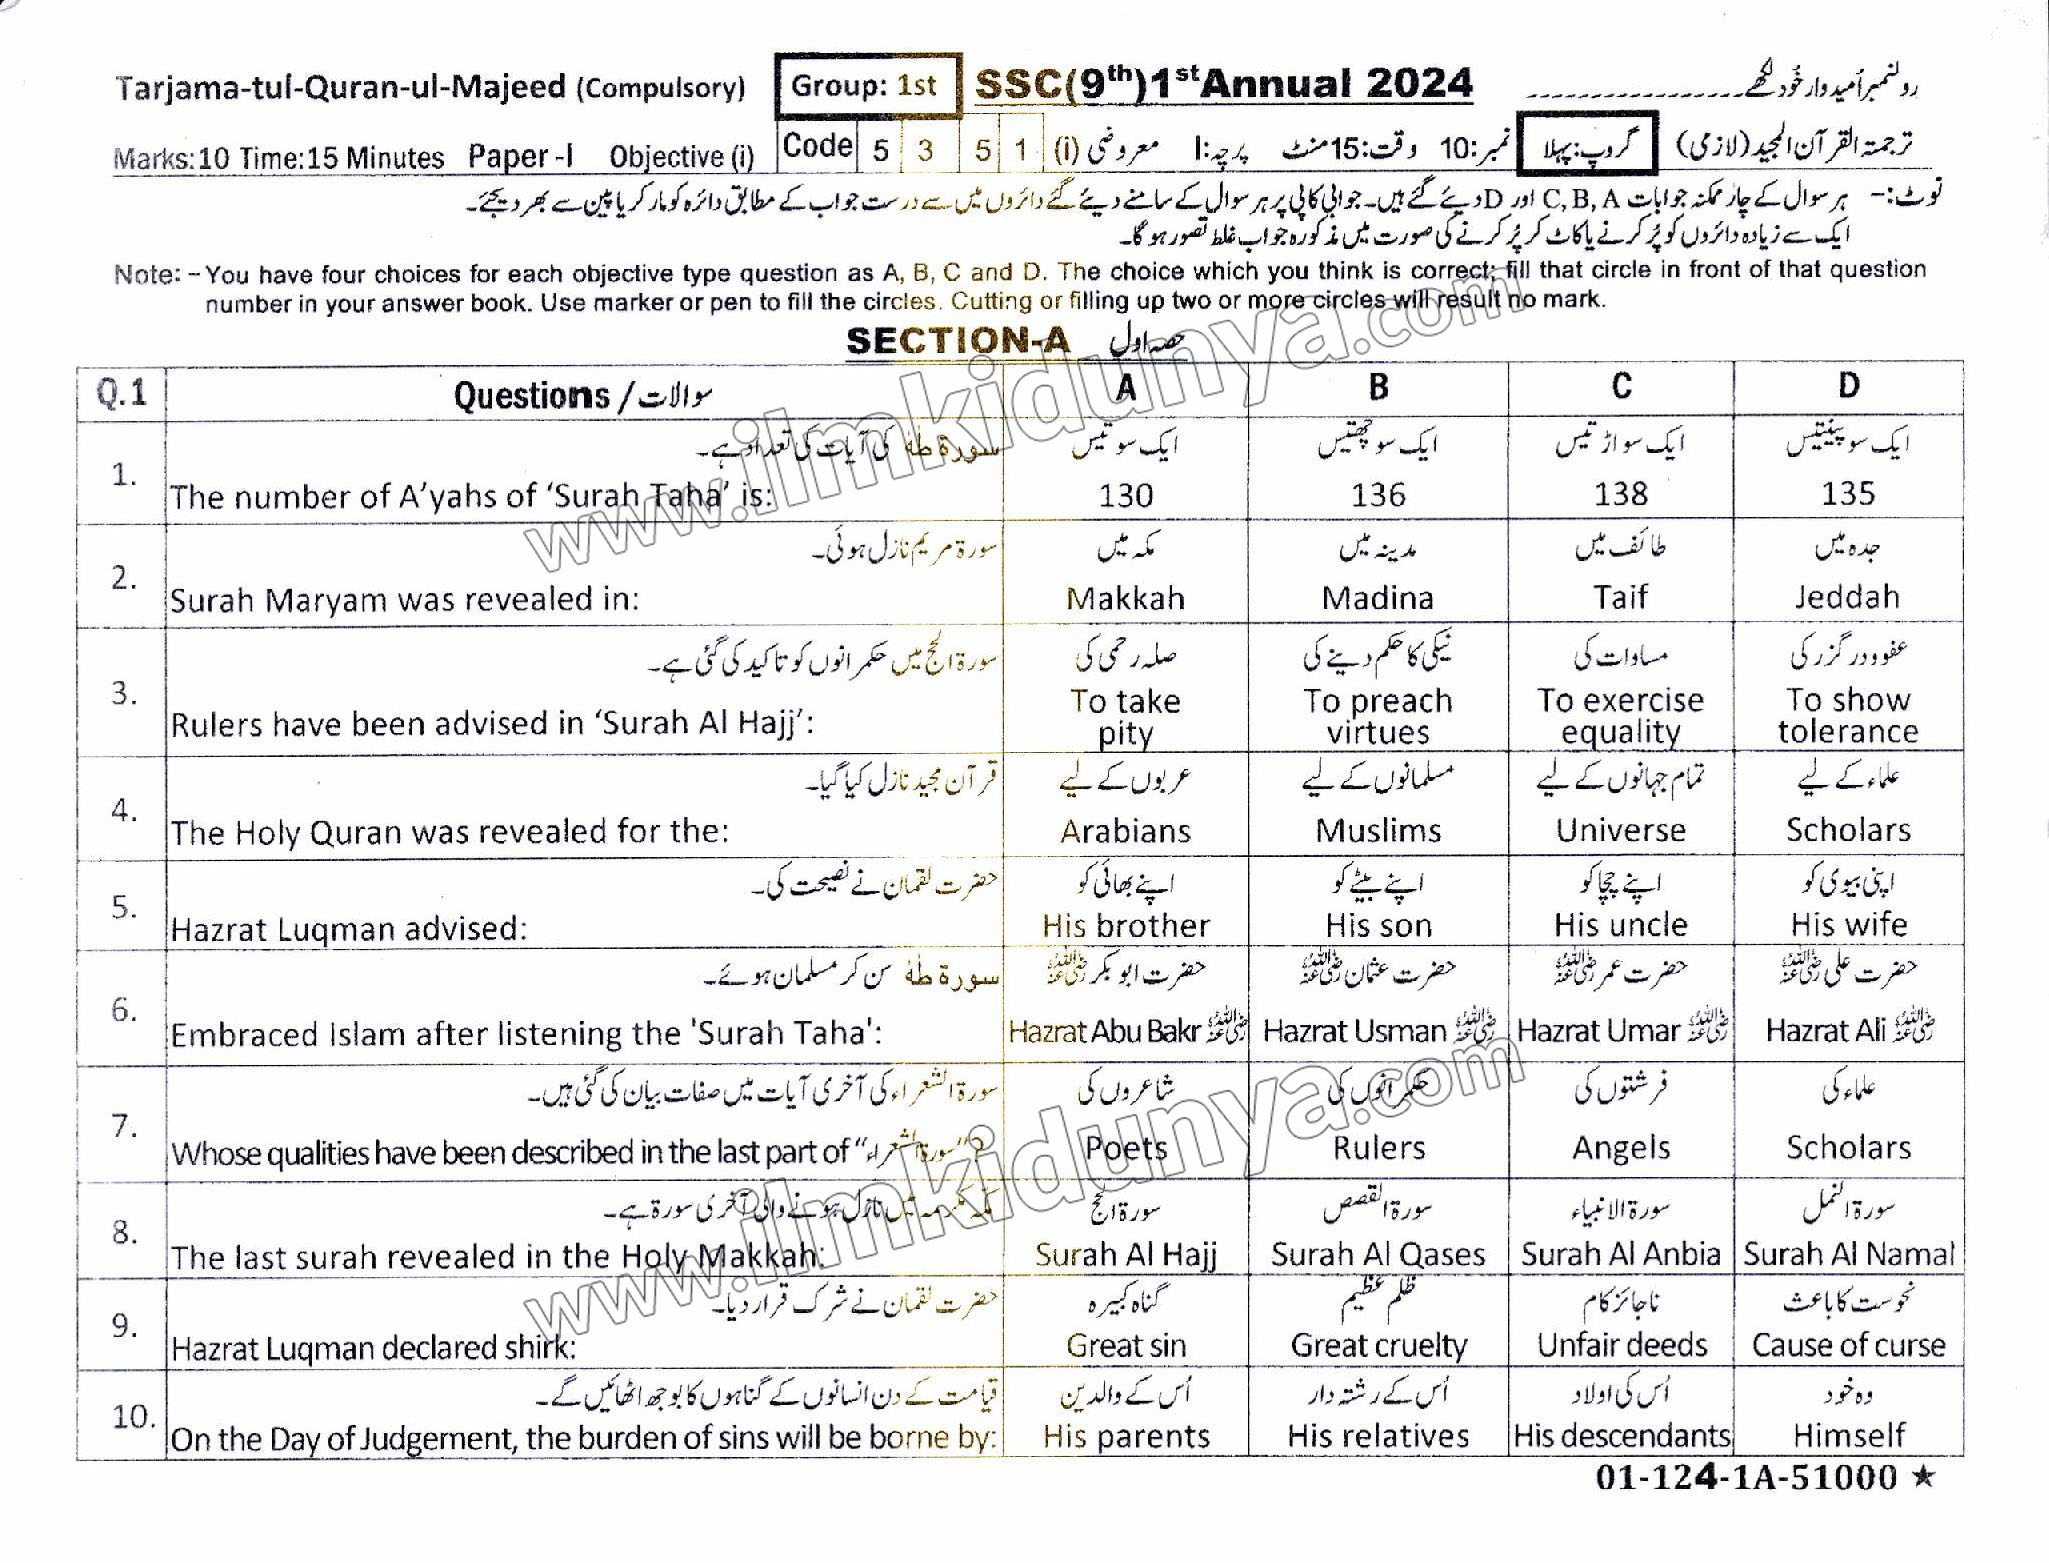 Tarjama-tul-Quran-ul-Majeed (Compulsory) Group: 1st SSC(9th)1st Annual 2024 رولنمبر اُمیدوار خُود لکھے
Marks:10 Time:15 Minutes Paper -I Objective (i) Code 5 3 5 1 ترجمۃ القرآن المجید (لازمی) گروپ: پہلا نمبر: 10 وقت: 15 منٹ پرچہ: I معروضی (i)
نوٹ:- ہر سوال کے چار ممکنہ جوابات C, B, A اور D دیئے گئے ہیں۔ جوابی کاپی پر ہر سوال کے سامنے دیئے گئے دائروں میں سے درست جواب کے مطابق دائرہ کو مارکر یا پین سے بھر دیجئے۔
ایک سے زیادہ دائروں کو پُر کرنے یا کاٹ کر پُر کرنے کی صورت میں مذکورہ جواب غلط تصور ہو گا۔
Note: - You have four choices for each objective type question as A, B, C and D. The choice which you think is correct; fill that circle in front of that question
number in your answer book. Use marker or pen to fill the circles. Cutting or filling up two or more circles will result no mark.
SECTION-A حصہ اول
Q.1 Questions / سوالات A B C D
سورۃ طٰهٰ کی آیات کی تعداد ہے۔ ایک سو تیس ایک سو چھتیس ایک سو اڑتیس ایک سو پینتیس
1. The number of A'yahs of ‘Surah Taha’ is: 130 136 138 135
سورۃ مریم نازل ہوئی۔ مکہ میں مدینہ میں طائف میں جدہ میں
2. Surah Maryam was revealed in: Makkah Madina Taif Jeddah
سورۃ الحج میں حکمرانوں کو تاکید کی گئی ہے۔ صلہ رحمی کی نیکی کا حکم دینے کی مساوات کی عفوودرگزر کی
3. Rulers have been advised in ‘Surah Al Hajj’: To take pity To preach virtues To exercise equality To show tolerance
قرآن مجید نازل کیا گیا۔ عربوں کے لیے مسلمانوں کے لیے تمام جہانوں کے لیے علماء کے لیے
4. The Holy Quran was revealed for the: Arabians Muslims Universe Scholars
حضرت لقمان نے نصیحت کی۔ اپنے بھائی کو اپنے بیٹے کو اپنے چچا کو اپنی بیوی کو
5. Hazrat Luqman advised: His brother His son His uncle His wife
سورۃ طٰهٰ سن کر مسلمان ہوئے۔ حضرت ابو بکر رضی اللہ عنہ حضرت عثمان رضی اللہ عنہ حضرت عمر رضی اللہ عنہ حضرت علی رضی اللہ عنہ
6. Embraced Islam after listening the 'Surah Taha': Hazrat Abu Bakr رضی اللہ عنہ Hazrat Usman رضی اللہ عنہ Hazrat Umar رضی اللہ عنہ Hazrat Ali رضی اللہ عنہ
سورۃ الشعراء کی آخری آیات میں صفات بیان کی گئی ہیں۔ شاعروں کی حکمرانوں کی فرشتوں کی علماء کی
7. Whose qualities have been described in the last part of “سورۃ الشعراء”? Poets Rulers Angels Scholars
مکہ مکرمہ میں نازل ہونے والی آخری سورۃ ہے۔ سورۃ الحج سورۃ القصص سورۃ الانبیاء سورۃ النمل
8. The last surah revealed in the Holy Makkah: Surah Al Hajj Surah Al Qases Surah Al Anbia Surah Al Namal
حضرت لقمان نے شرک قرار دیا۔ گناہ کبیرہ ظلم عظیم ناجائز کام نحوست کا باعث
9. Hazrat Luqman declared shirk: Great sin Great cruelty Unfair deeds Cause of curse
قیامت کے دن انسانوں کے گناہوں کا بوجھ اٹھائیں گے۔ اُس کے والدین اُس کے رشتہ دار اُس کی اولاد وہ خود
10. On the Day of Judgement, the burden of sins will be borne by: His parents His relatives His descendants Himself
01-124-1A-51000 ★
www.ilmkidunya.com
www.ilmkidunya.com